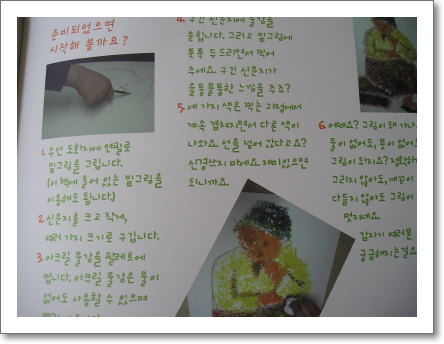 준비되었으면
시작해 볼까요?
1. 우선 도화지에 연필로
밑그림을 그립니다.
(이 책에 들어 있는 밑그림을
이용해도 됩니다.)
2. 신문지를 크고 작게,
여러 가지 크기로 구깁니다.
3. 아크릴 물감을 팔레트에
짭니다. 아크릴 물감은 물이
없어도 사용할 수 있으며
4. 구긴 신문지에 물감을
묻힙니다. 그리고 밑그림에
톡톡 두드리면서 찍어
주세요. 구긴 신문지가
울퉁불퉁한 느낌을 주죠?
5. 세 가지 색은 찍는 과정에서
계속 겹쳐지면서 다른 색이
나와요. 선을 넘어 갔다고요?
신경쓰지 마세요. 재미있으면
되니까요.
6. 어때요? 그림이 돼 가나
물이 없어도, 붓이 없어도
그림이 되지요?
그리지 않아도, 매끈히
다듬지 않아도 그림이
멋지네요.
갑자기 여러분
궁금해지는걸요